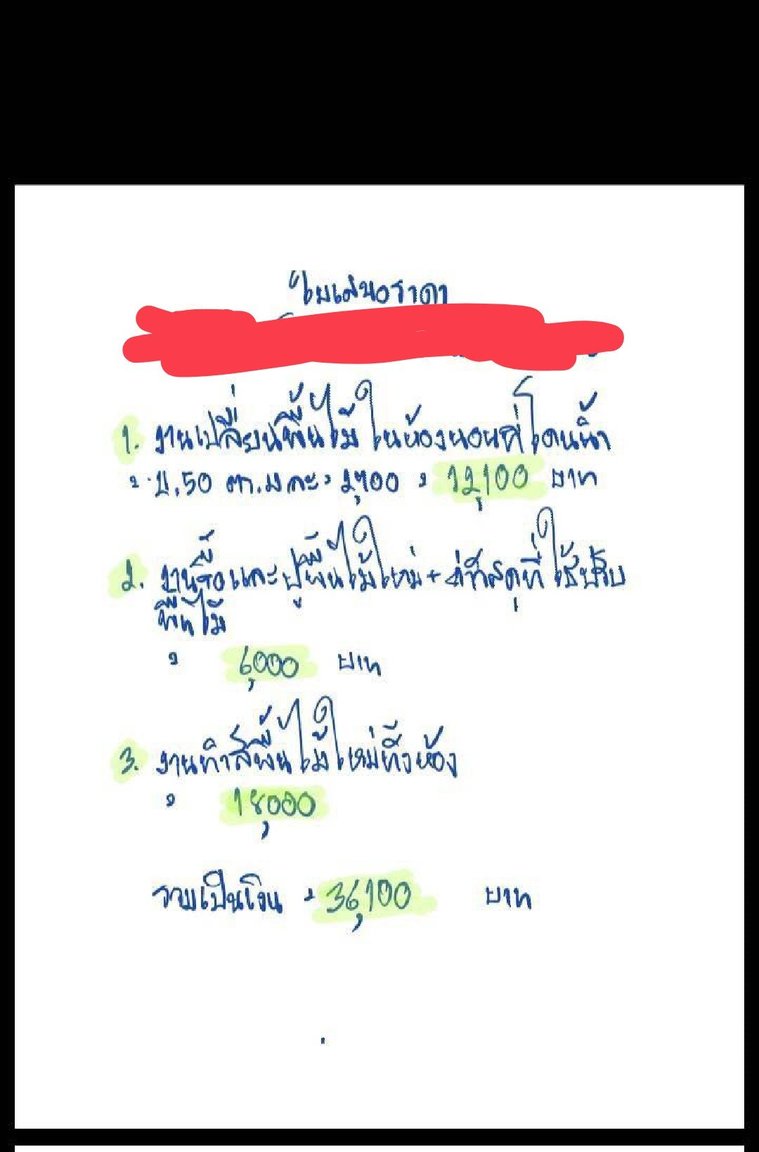 ใบเสนอราคา
1. งานเปลี่ยนพื้นไม้ ในห้องนอนที่โดนน้ำ
5.50 ตา.ม ละ = 2,200 = 12,100 บาท
2. งานรื้อและปูพื้นไม้ใหม่ +
พื้นไม้
= 6,000 บาท
3. งานทำสีพื้นไม้ใหม่ทั้งห้อง
= 18,000
รวมเป็นเงิน = 36,100 บาท